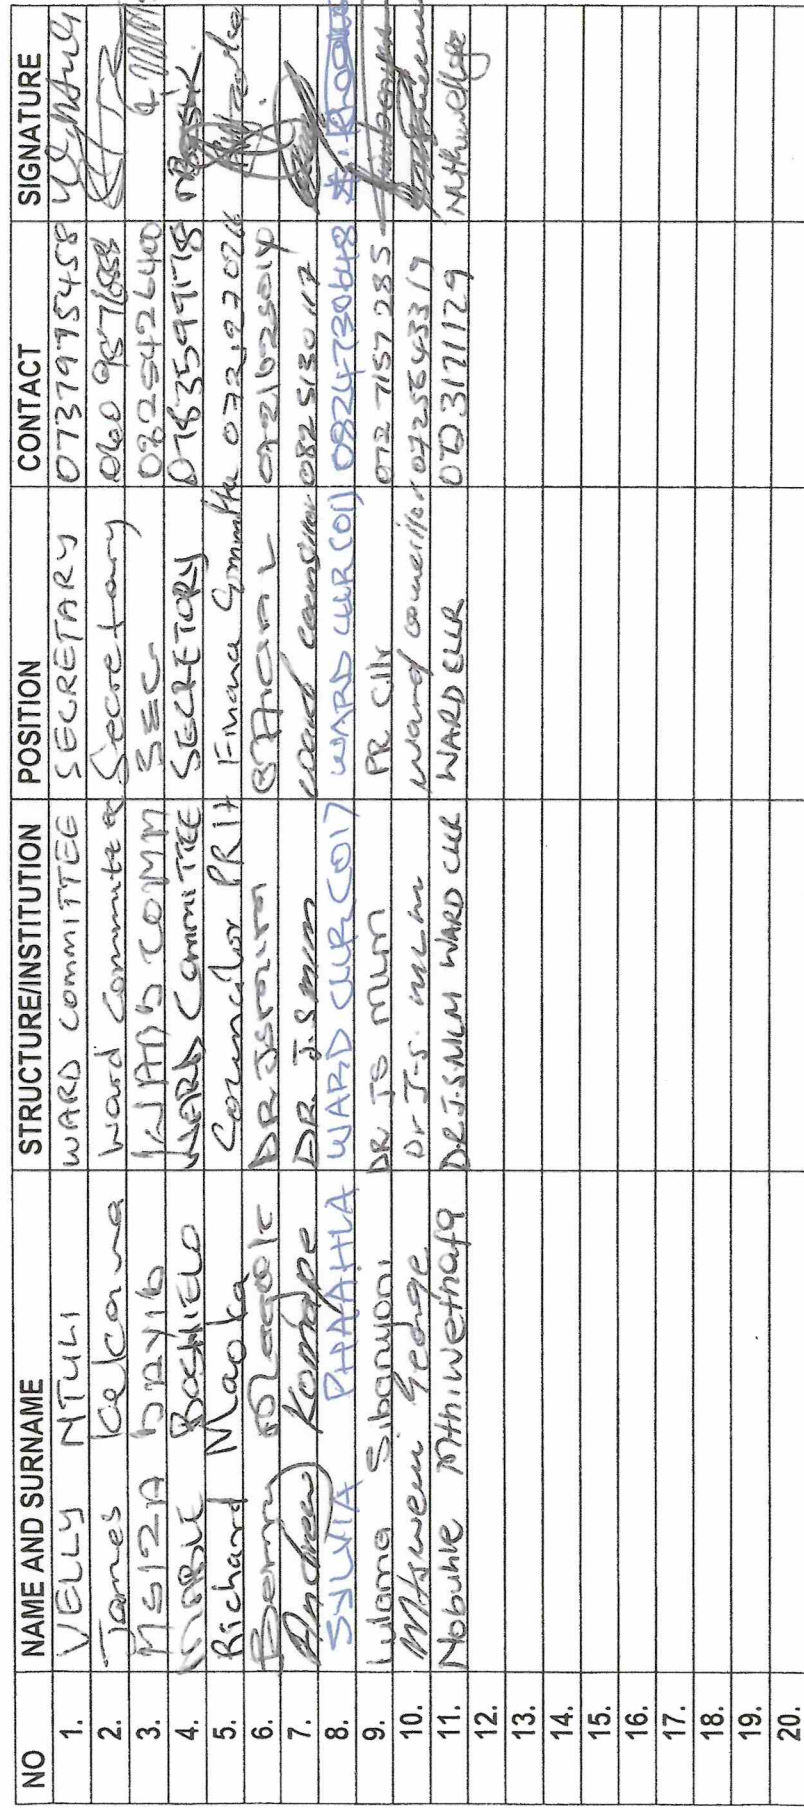 NO NAME AND SURNAME STRUCTURE/INSTITUTION POSITION CONTACT SIGNATURE
1. VELLY NTULI WARD COMMITTEE SECRETARY 0737995458
2. James Kekana Ward Committee Secretary
3. MSIZA WARD COMM SEC 0825426400
4. MABLE BOSHIELO WARD COMMITTEE SECRETORY 0783599178
5. Richard Maoka Councilor PR Finance Committee
6. DR JSMLM
7. Andrew Komape DR. J.S MLM Ward 082 5130 117
8. SYLVIA PHAAHLA WARD CLLR (01) WARD CLLR (01) 0824730648
9. Lulama Sibanyoni DR JS MLM PR Cllr 072 7157 285
10. Mtsweni George Dr J-S. MLM Ward Councillor 0725643319
11. Nobuhle Mthiwethafa DR.J.S.MLM WARD CLLR WARD CLLR 0723171129
12.
13.
14.
15.
16.
17.
18.
19.
20.